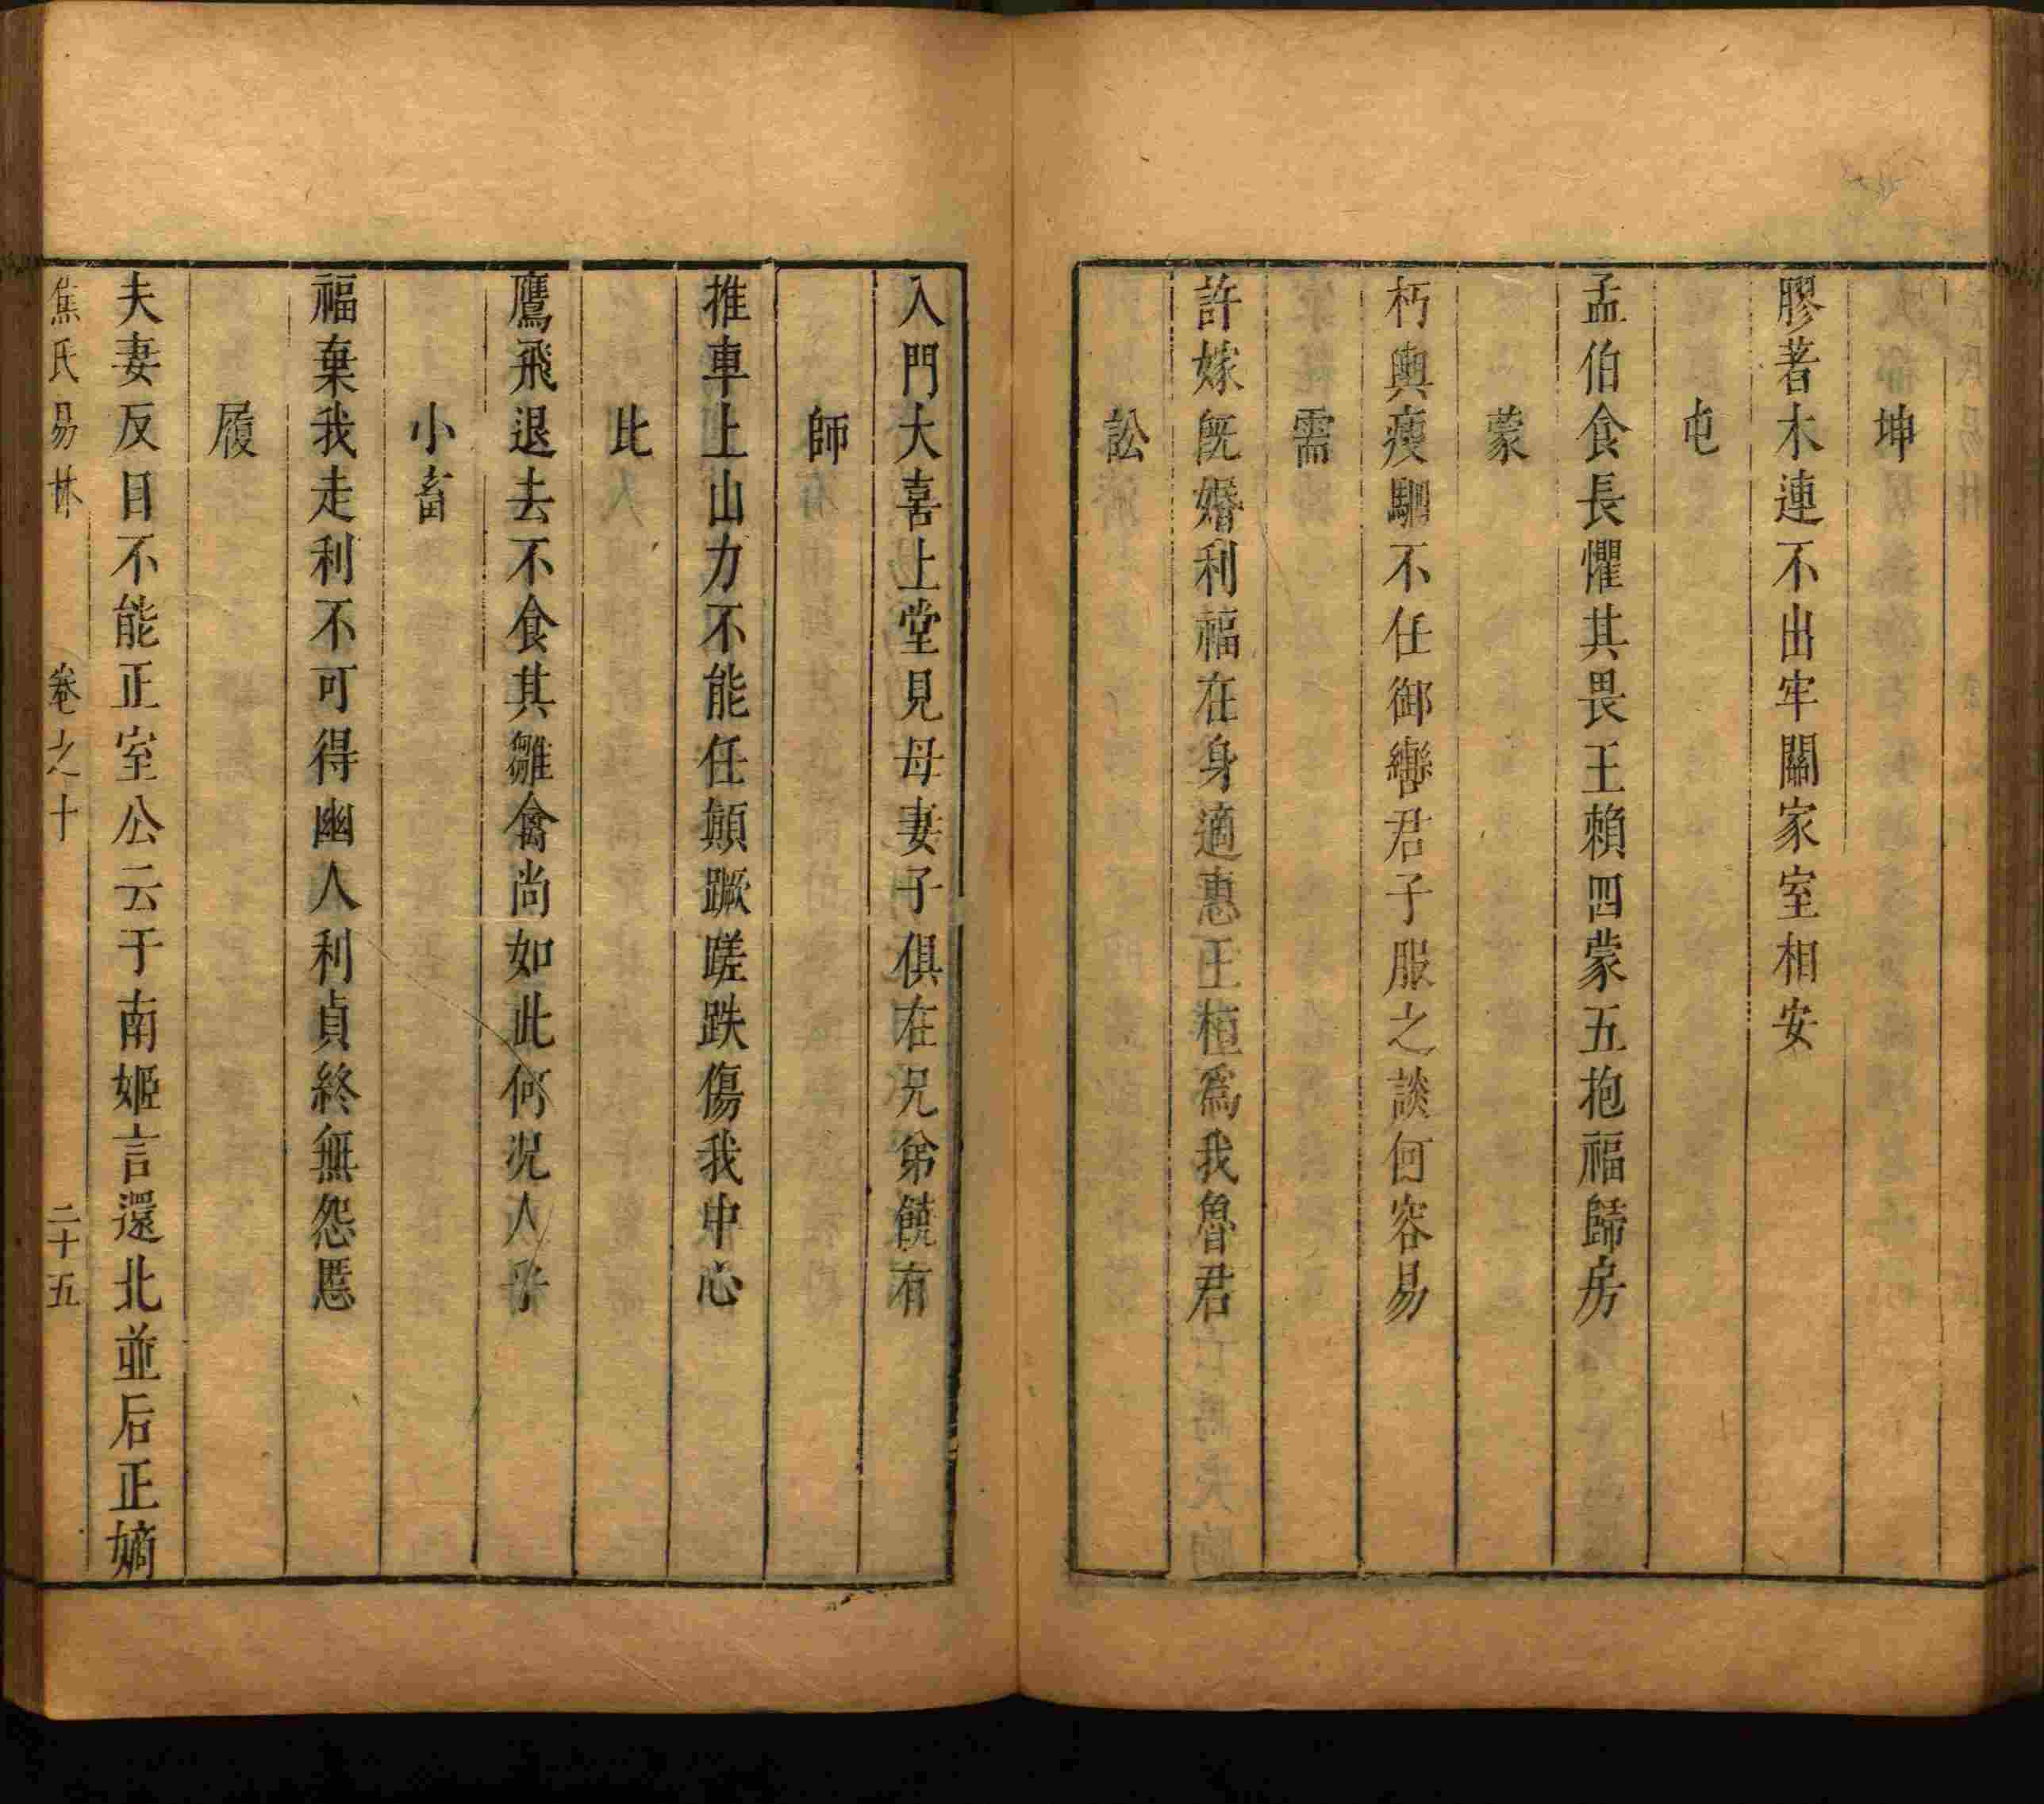 坤
膠著木連不出牢關家室相安
屯
孟伯食長懼其畏王賴四蒙五抱福歸房
蒙
朽輿瘦駟不任御轡君子服之談何容易
需
許嫁旣婚利福在身適惠王桓爲我魯君
訟
入門大喜上堂見母妻子俱在兄弟饒有
師
推車上山力不能任顛蹶蹉跌傷我中心
比
鷹飛退去不食其雛禽尚如此何况人乎
小畜
福棄我走利不可得幽人利貞終無怨慝
履
夫妻反目不能正室公云于南姬言還北並后正嫡
焦氏易林 卷之十 二十五